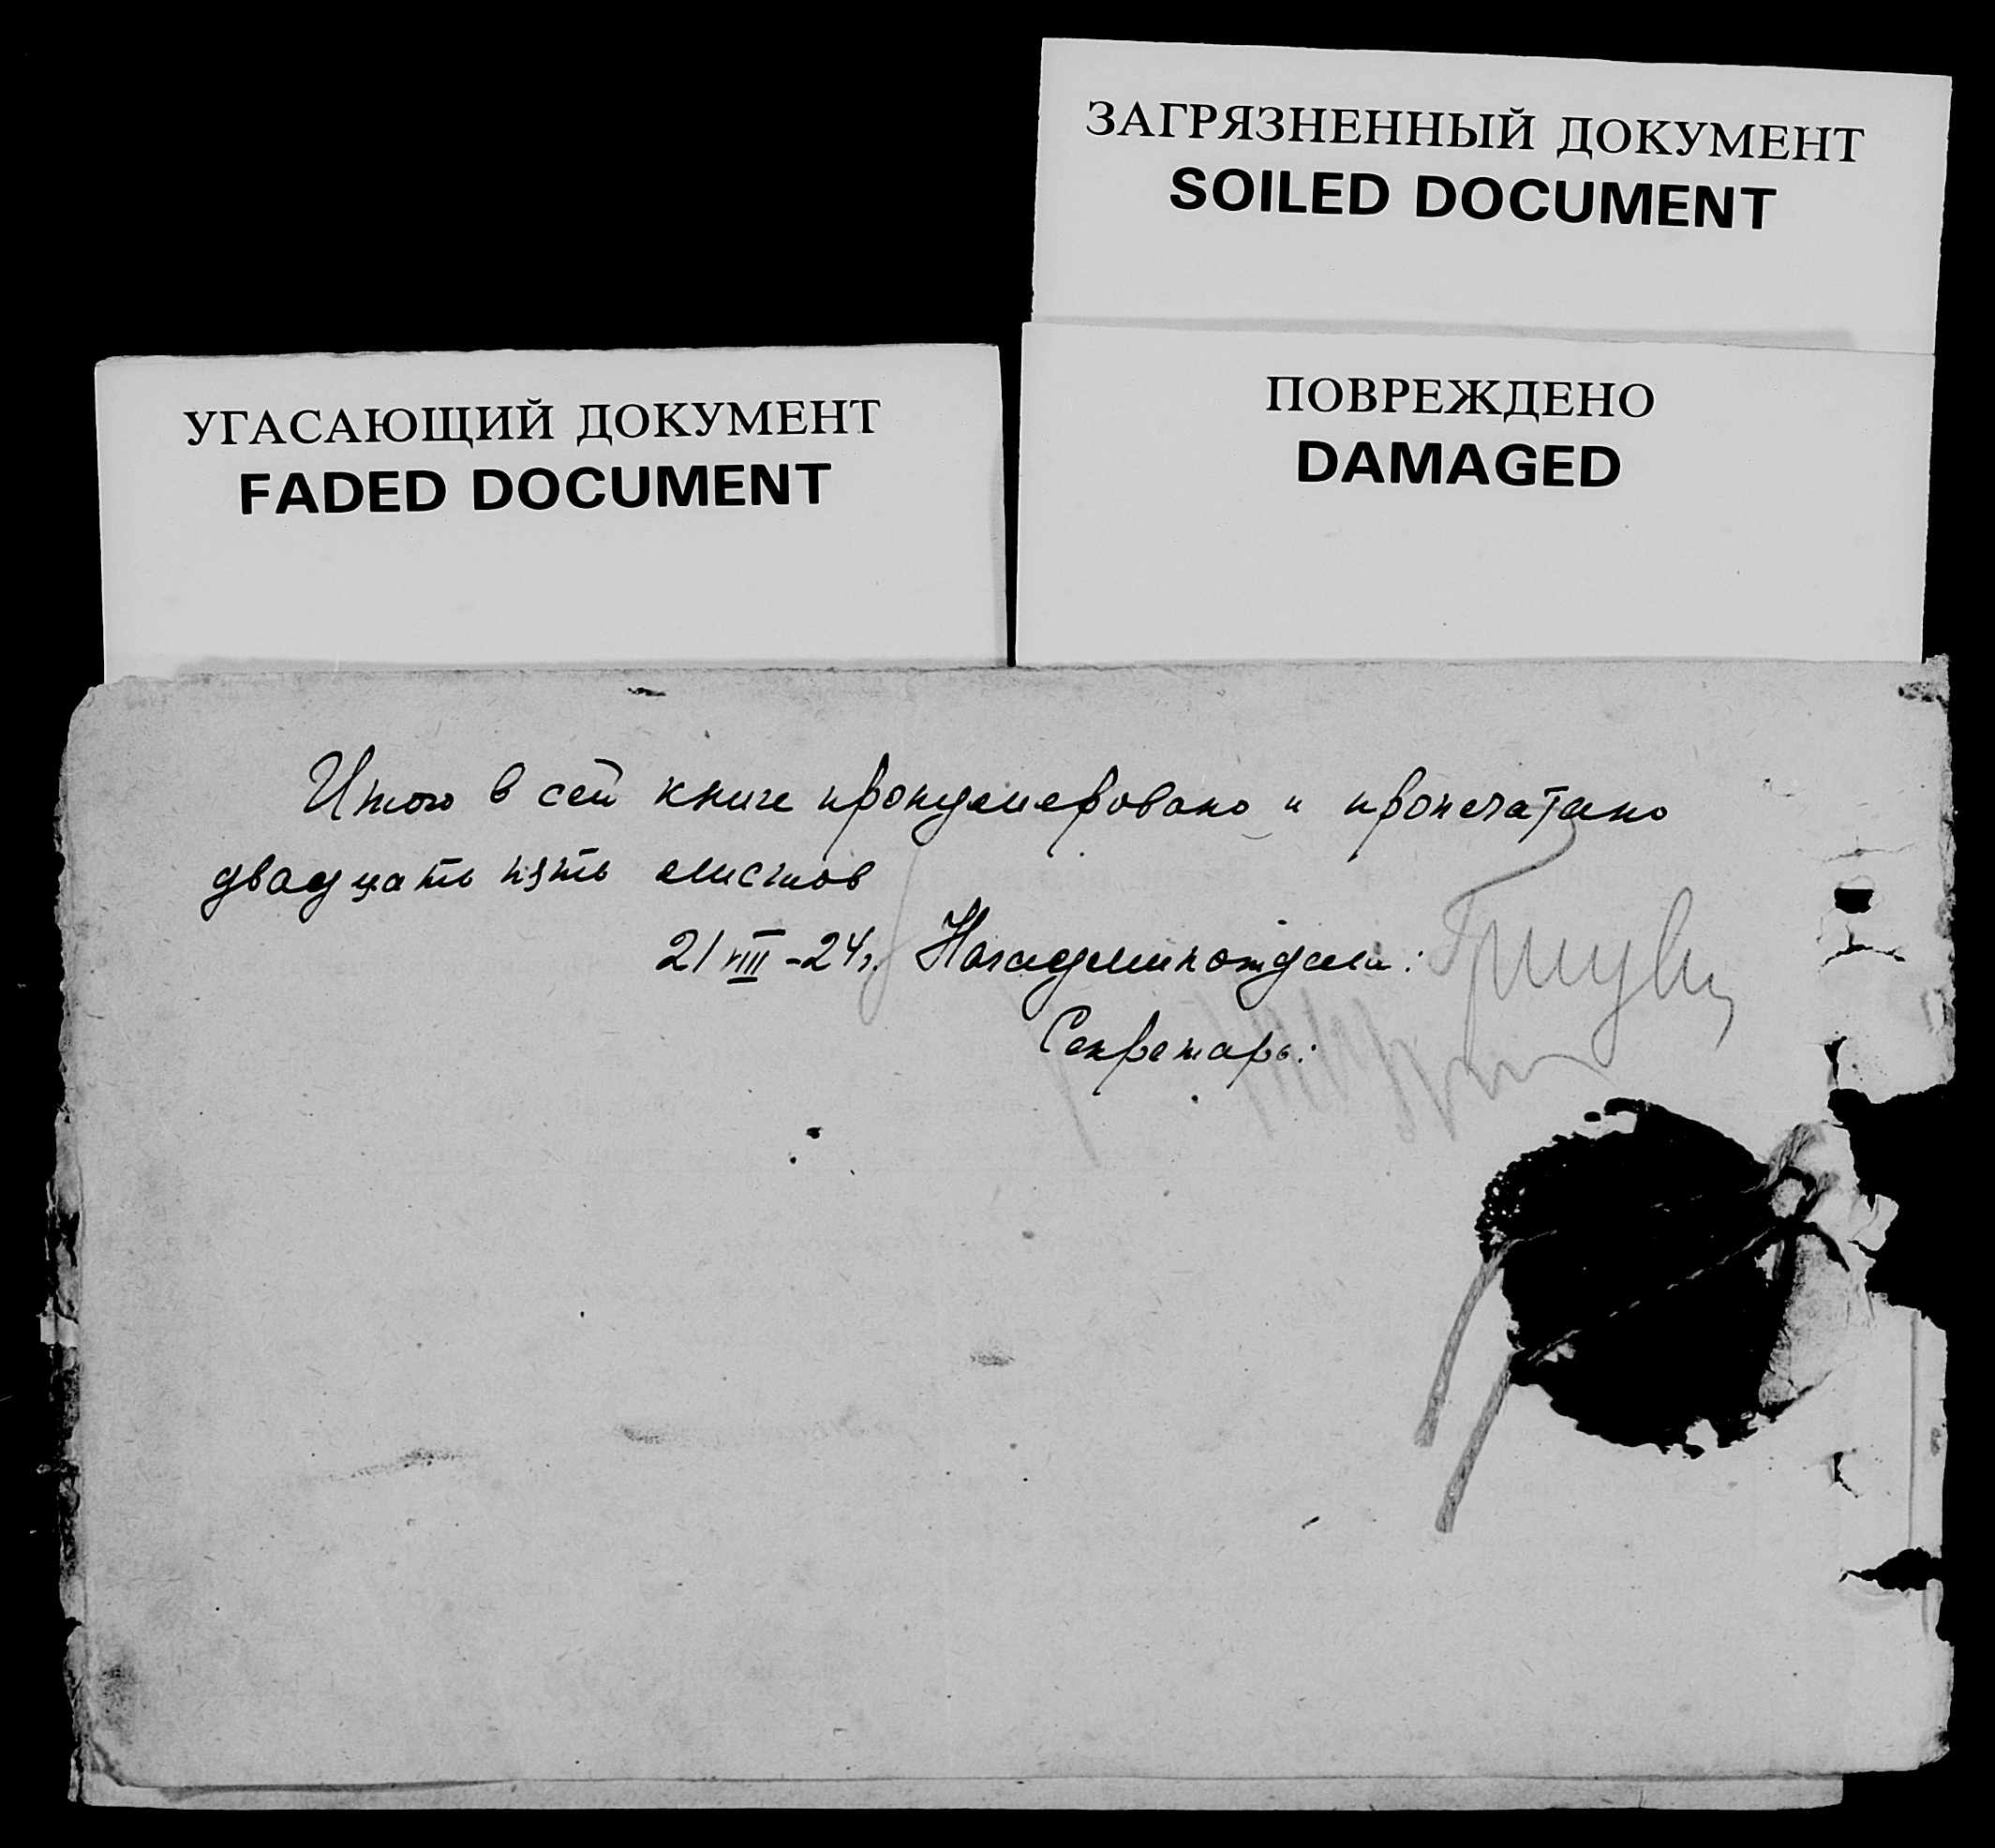 ЗАГРЯЗНЕННЫЙ ДОКУМЕНТ
SOILED DOCUMENT
УГАСАЮЩИЙ ДОКУМЕНТ
FADED DOCUMENT
ПОВРЕЖДЕНО
DAMAGED
Итого в сей книге пронумеровано и пропечатано
двадцать пять листов
21 VIII - 24 г. Начадминотдела:
Секретарь: